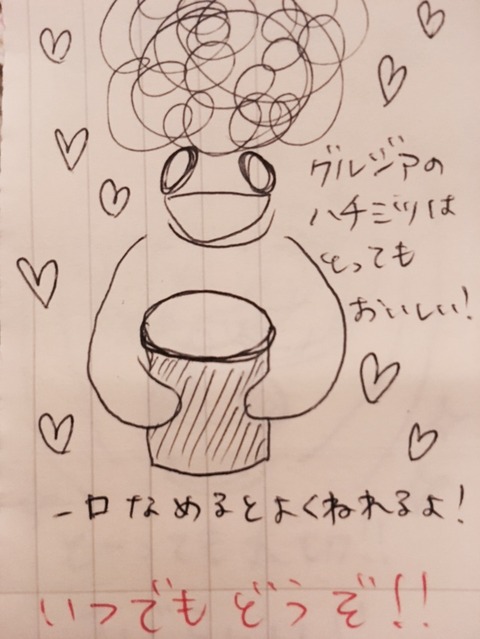 グルジアの
ハチミツは
とっても
おいしい!
一口なめるとよくねれるよ!
いつでもどうぞ!!